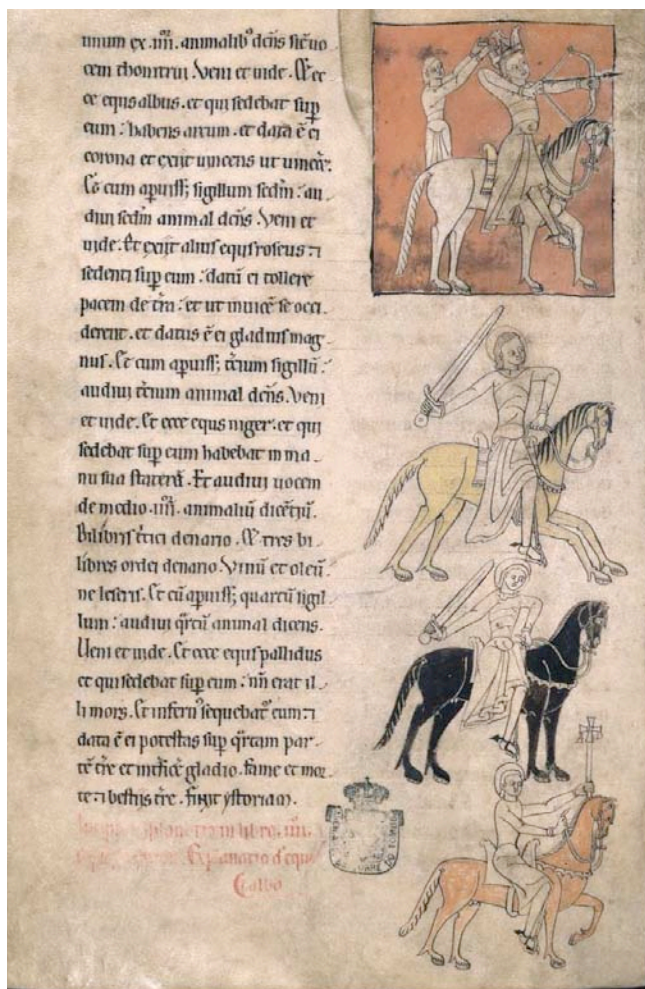 unum ex .iiii. animalib' dcēns sicut uo
cem thonitrui. Veni et uide. Et ec
ce equs albus. et qui sedebat sup
eum: habens arcum. et data ē ei
corona et exiit uincens ut uinceret.
Et cum apuiss; sigillum scdm: au
diui scdm animal dcēns. Veni et
uide. Et exiit alius equs roseus: ⁊
sedenti sup eum: datū ei tollere
pacem de tra: et ut inuicē se occi
derent. et datus ē ei gladius mag
nus. Et cum apuiss; tcium sigillū:
audiui tcium animal dcēns. Veni
et uide. Et ecce equs niger. et qui
sedebat sup eum habebat in ma
nu sua staterā. Et audiui uocem
de medio .iiii. animaliū dicētiū.
Bilibris tritici denario. Et tres bi
libres ordei denario. Vinū et oleū
ne leseris. Et cū apuiss; quartū sigil
lum: audiui qrtū animal dicens.
Veni et uide. Et ecce equs pallidus
et qui sedebat sup eum: nm̄ erat il
li mors. Et infern' sequebat' eum: ⁊
data ē ei potestas sup qrtam par
tē tre et interficē gladio. fame et mor
te ⁊ bestiis tre. finit ystoria.
in libro .iiii.
Explanatio d' equo
albo